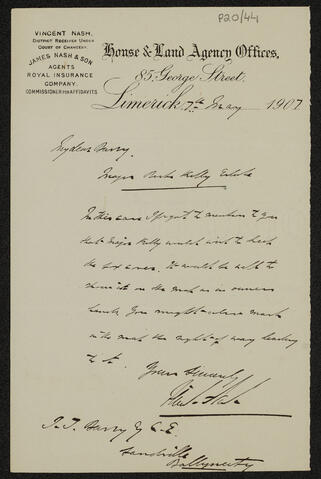 P20/44
VINCENT NASH,
DISTRICT RECEIVER UNDER
COURT OF CHANCERY.
JAMES NASH & SON
AGENTS
ROYAL INSURANCE
COMPANY.
COMMISSIONER FOR AFFIDAVITS
House & Land Agency Offices,
85, George Street,
Limerick 7th May 1907
My dear Barry.
Major Kelly Estate
In this case I forgot to mention to you
that Major Kelly would wish to keep
the six acres. It would be well to
show it on the map as in owners
hands. You might also mark
on the map the right of way leading
to it.
Yours Sincerely
J. T. Barry Esq C.E.
Sandville
Ballyneety